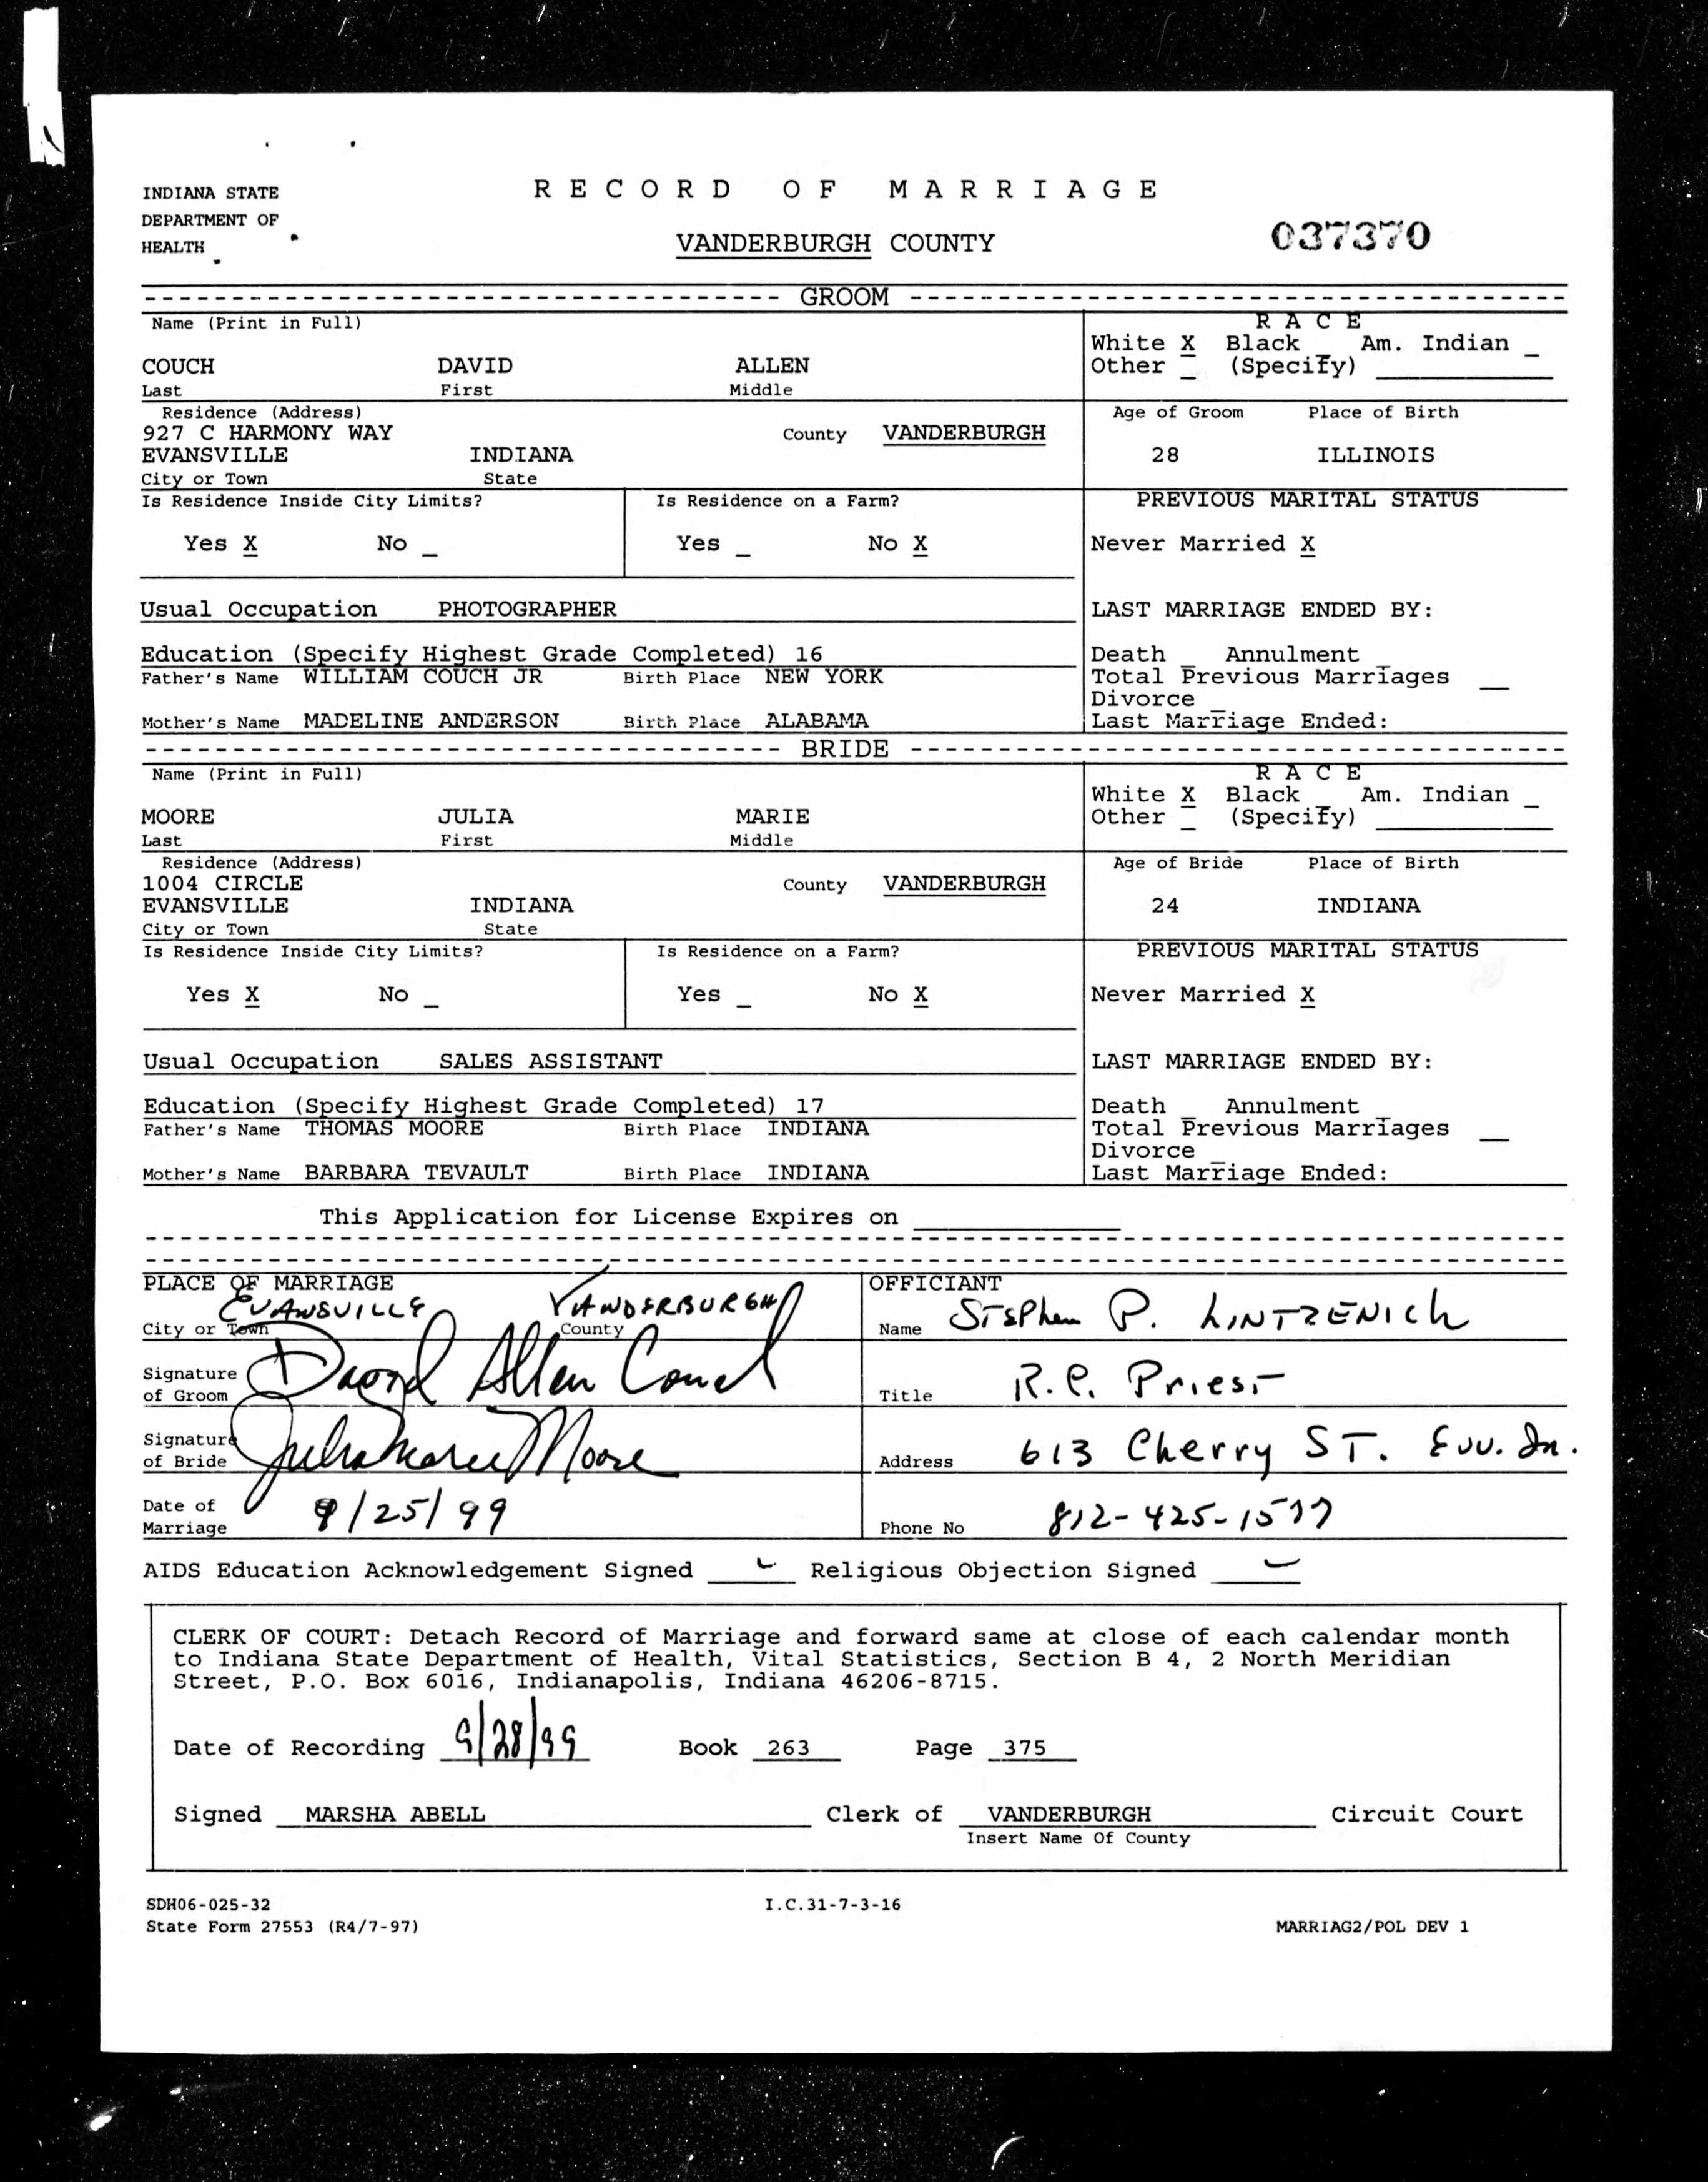 INDIANA STATE
DEPARTMENT OF
HEALTH
RECORD OF MARRIAGE
VANDERBURGH COUNTY
037370
GROOM
Name (Print in Full)
COUCH DAVID ALLEN
Last First Middle
RACE
White X Black _ Am. Indian _
Other _ (Specify) ____
Residence (Address)
927 C HARMONY WAY
County VANDERBURGH
EVANSVILLE INDIANA
City or Town State
Age of Groom Place of Birth
28 ILLINOIS
Is Residence Inside City Limits? Is Residence on a Farm?
Yes X No _ Yes _ No X
PREVIOUS MARITAL STATUS
Never Married X
Usual Occupation PHOTOGRAPHER
Education (Specify Highest Grade Completed) 16
Father's Name WILLIAM COUCH JR Birth Place NEW YORK
Mother's Name MADELINE ANDERSON Birth Place ALABAMA
LAST MARRIAGE ENDED BY:
Death _ Annulment _
Total Previous Marriages __
Divorce _
Last Marriage Ended:
BRIDE
Name (Print in Full)
MOORE JULIA MARIE
Last First Middle
RACE
White X Black _ Am. Indian _
Other _ (Specify) ____
Residence (Address)
1004 CIRCLE
County VANDERBURGH
EVANSVILLE INDIANA
City or Town State
Age of Bride Place of Birth
24 INDIANA
Is Residence Inside City Limits? Is Residence on a Farm?
Yes X No _ Yes _ No X
PREVIOUS MARITAL STATUS
Never Married X
Usual Occupation SALES ASSISTANT
Education (Specify Highest Grade Completed) 17
Father's Name THOMAS MOORE Birth Place INDIANA
Mother's Name BARBARA TEVAULT Birth Place INDIANA
LAST MARRIAGE ENDED BY:
Death _ Annulment _
Total Previous Marriages __
Divorce _
Last Marriage Ended:
This Application for License Expires on ____
PLACE OF MARRIAGE
EVANSVILLE VANDERBURGH
City or Town County
Signature of Groom David Allen Couch
Signature of Bride Julia Marie Moore
Date of Marriage 9/25/99
OFFICIANT
Name Stephen P. LINTZENICh
Title R.C. Priest
Address 613 Cherry ST. Evv. In.
Phone No 812-425-1577
AIDS Education Acknowledgement Signed ____ Religious Objection Signed ____
CLERK OF COURT: Detach Record of Marriage and forward same at close of each calendar month
to Indiana State Department of Health, Vital Statistics, Section B 4, 2 North Meridian
Street, P.O. Box 6016, Indianapolis, Indiana 46206-8715.
Date of Recording 9/28/99 Book 263 Page 375
Signed MARSHA ABELL Clerk of VANDERBURGH Circuit Court
Insert Name Of County
SDH06-025-32 I.C.31-7-3-16
State Form 27553 (R4/7-97) MARRIAG2/POL DEV 1